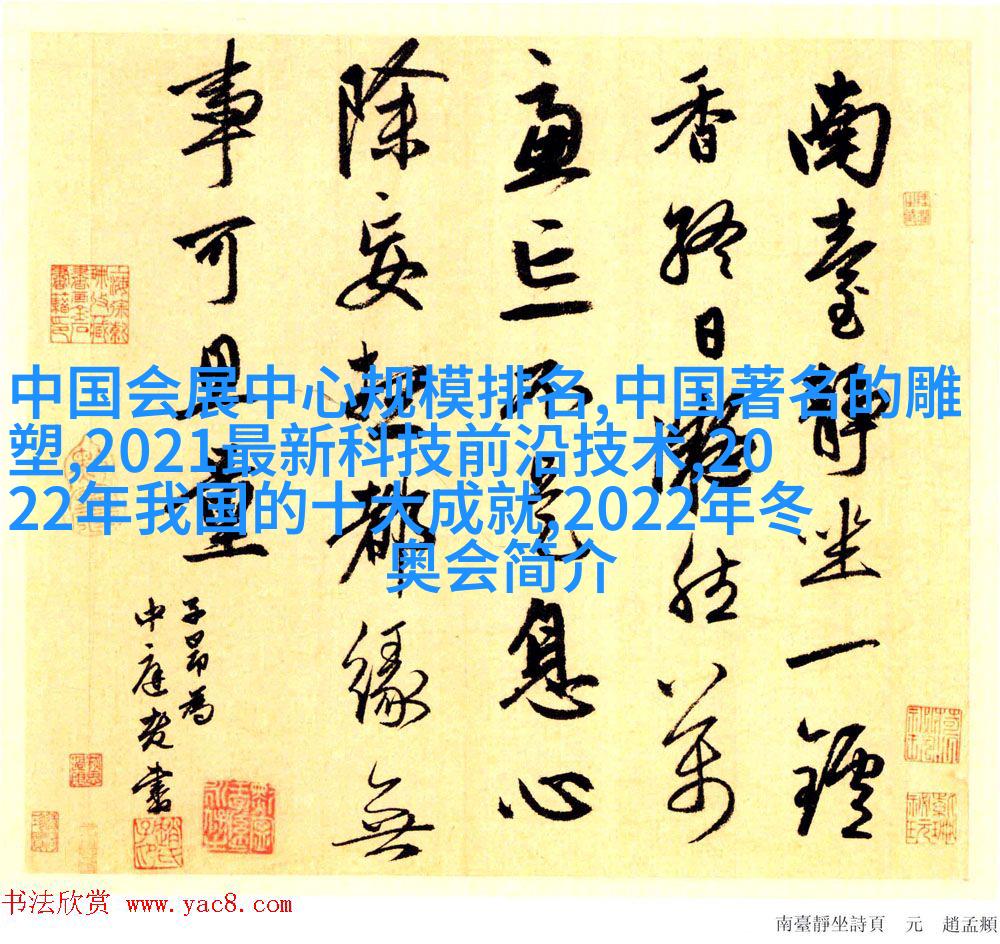 南臺靜坐一鑪
香終日凝然萬
慮亡不是息心
除妄想都緣無
事可量
子昂為
中庭老書
中国会展中心规模排名,中国著名的雕
塑,2021最新科技前沿技术,20
22年我国的十大成就,2022年冬
奥会简介
书法欣赏 www.yac8.com
南臺靜坐詩頁 元 趙孟頫